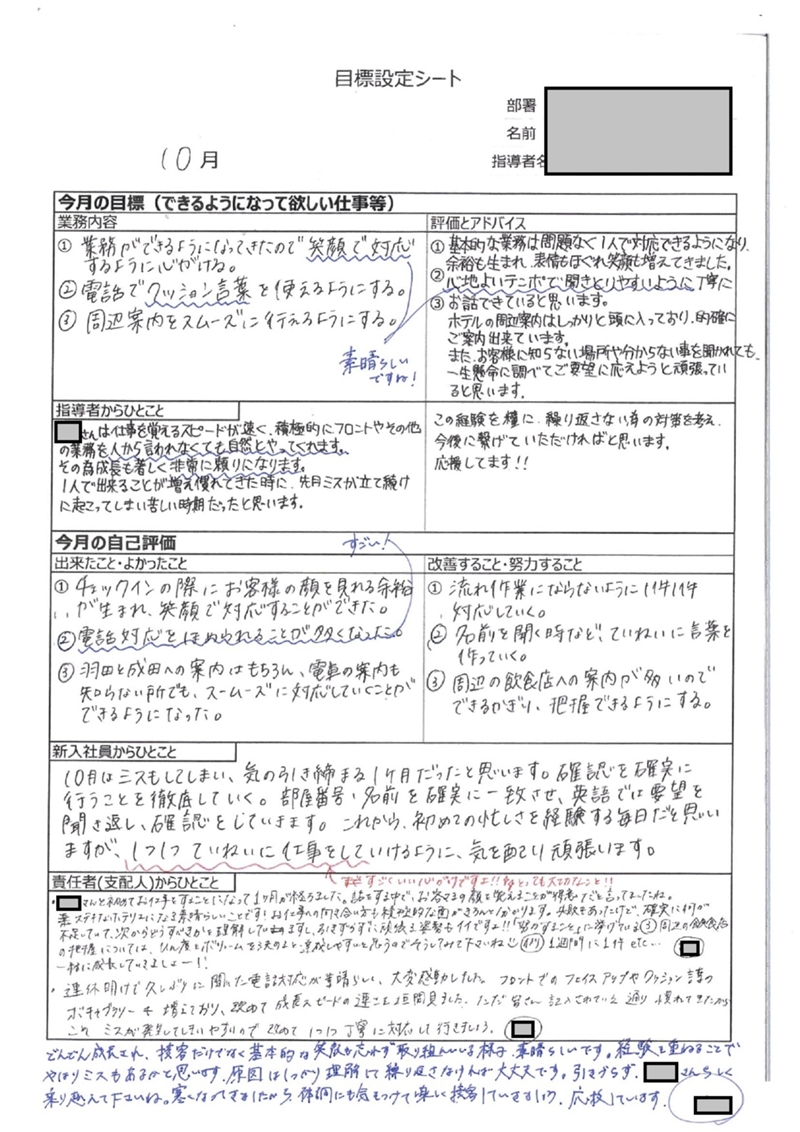 目標設定シート
部署
名前
指導者名
10月
今月の目標（できるようになって欲しい仕事等）
業務内容
① 業務ができるようになってきたので笑顔で対応
するように心がける。
② 電話でクッション言葉を使えるようにする。
③ 周辺案内をスムーズに行えるようにする。
素晴らしい
ですね！
評価とアドバイス
① 基本的な業務は問題なく1人で対応できるようになり、
余裕も生まれ、表情もほぐれ笑顔も増えてきました。
② 心地よいテンポで聞きとりやすいように丁寧に
③ お話できていると思います。
ホテルの周辺案内はしっかりと頭に入っており、的確に
ご案内出来ています。
また、お客様に知らない場所や分からない事を聞かれても、
一生懸命に調べてご要望に応えようと頑張ってい
ると思います。
指導者からひとこと
さんは仕事を覚えるスピードが速く、積極的にフロントやその他
の業務を人から言われなくても自然とやってくれます。
その為成長も著しく非常に頼りになります。
1人で出来ることが増え慣れてきた時に、先月ミスが立て続け
に起こってしまい苦しい時期だったと思います。
この経験を糧に、繰り返さない為の対策を考え、
今後に繋げていただければと思います。
応援してます！！
今月の自己評価
すごい！
出来たこと・よかったこと
① チェックインの際にお客様の顔を見れる余裕
が生まれ、笑顔で対応することができた。
② 電話対応をほめられることが多くなった。
③ 羽田と成田への案内はもちろん、電車の案内も
知らない所でも、スームーズに対応していくことが
できるようになった。
改善すること・努力すること
① 流れ作業にならないように1件1件
対応していく。
② 名前を聞く時など、ていねいに言葉を
作っていく。
③ 周辺の飲食店への案内が多いので
できるかぎり、把握できるようにする。
新入社員からひとこと
10月はミスもしてしまい、気の引き締まる1ヶ月だったと思います。確認を確実に
行うことを徹底していく。部屋番号・名前を確実に一致させ、英語では要望を
聞き返し、確認をしていきます。これから、初めての忙しさを経験する毎日だと思い
ますが、1つ1つていねいに仕事をしていけるように、気を配り頑張ります。
ますすごくいい心がけですよ!! とっても大切なこと!!
責任者（支配人）からひとこと
さんと初めてお仕事をすることになって1ヶ月が経ちました。話をする中で、お客さまの顔を覚えることが得意だと言ってましたね。
ステキなホテリエになる素晴らしいことです！お仕事への向き合い方も積極的な面がきちんと分かります。失敗もあったけど、確実に何が
不足していて、次からどうすべきかを理解していますし、引きずらずに頑張る姿勢もイイですよ!!「努力すること」に挙げている③周辺の飲食店
の把握については、件数とボリュームを決めると、達成しやすいと思うのでそうしてみて下さいね（例）1週間に1件 etc...
一緒に成長していきましょー！！
・連休明けで久しぶりに聞いた電話対応が素晴らしい、大変感動しました。フロントでのフェイスアップやクッション言葉の
ボキャブラリーも増えており、改めて成長スピードの速さを垣間見ました。ただ皆さん記入されている通り慣れてきたから
こそミスが発生してしまいやすいので改めて1つ1つ丁寧に対応して行きましょう。
どんどん成長され、接客だけでなく基本的な笑顔も忘れず取り組んでいる様子、素晴らしいです。経験を重ねることで
やはりミスもあるかと思いますが、原因はしっかり理解して繰り返さなければ大丈夫です。引きずらず、さんらしく
乗り越えて下さいね。寒くなってきましたから、体調にも気をつけて楽しく接客していきましょう。応援しています。